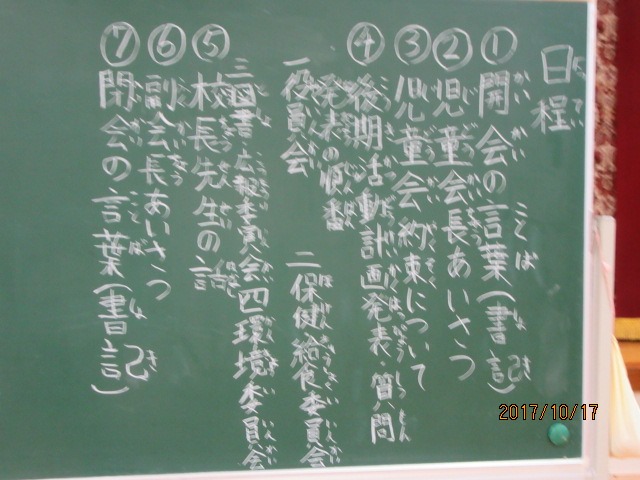 日程
①開会の言葉(書記)
②児童会長あいさつ
③児童会約束について
④後期活動計画発表・質問
発表の順番
一役員会 二保健給食委員会
三図書・広報委員会四環境委員会
⑤校長先生の話
⑥副会長あいさつ
⑦閉会の言葉(書記)
2017/10/17